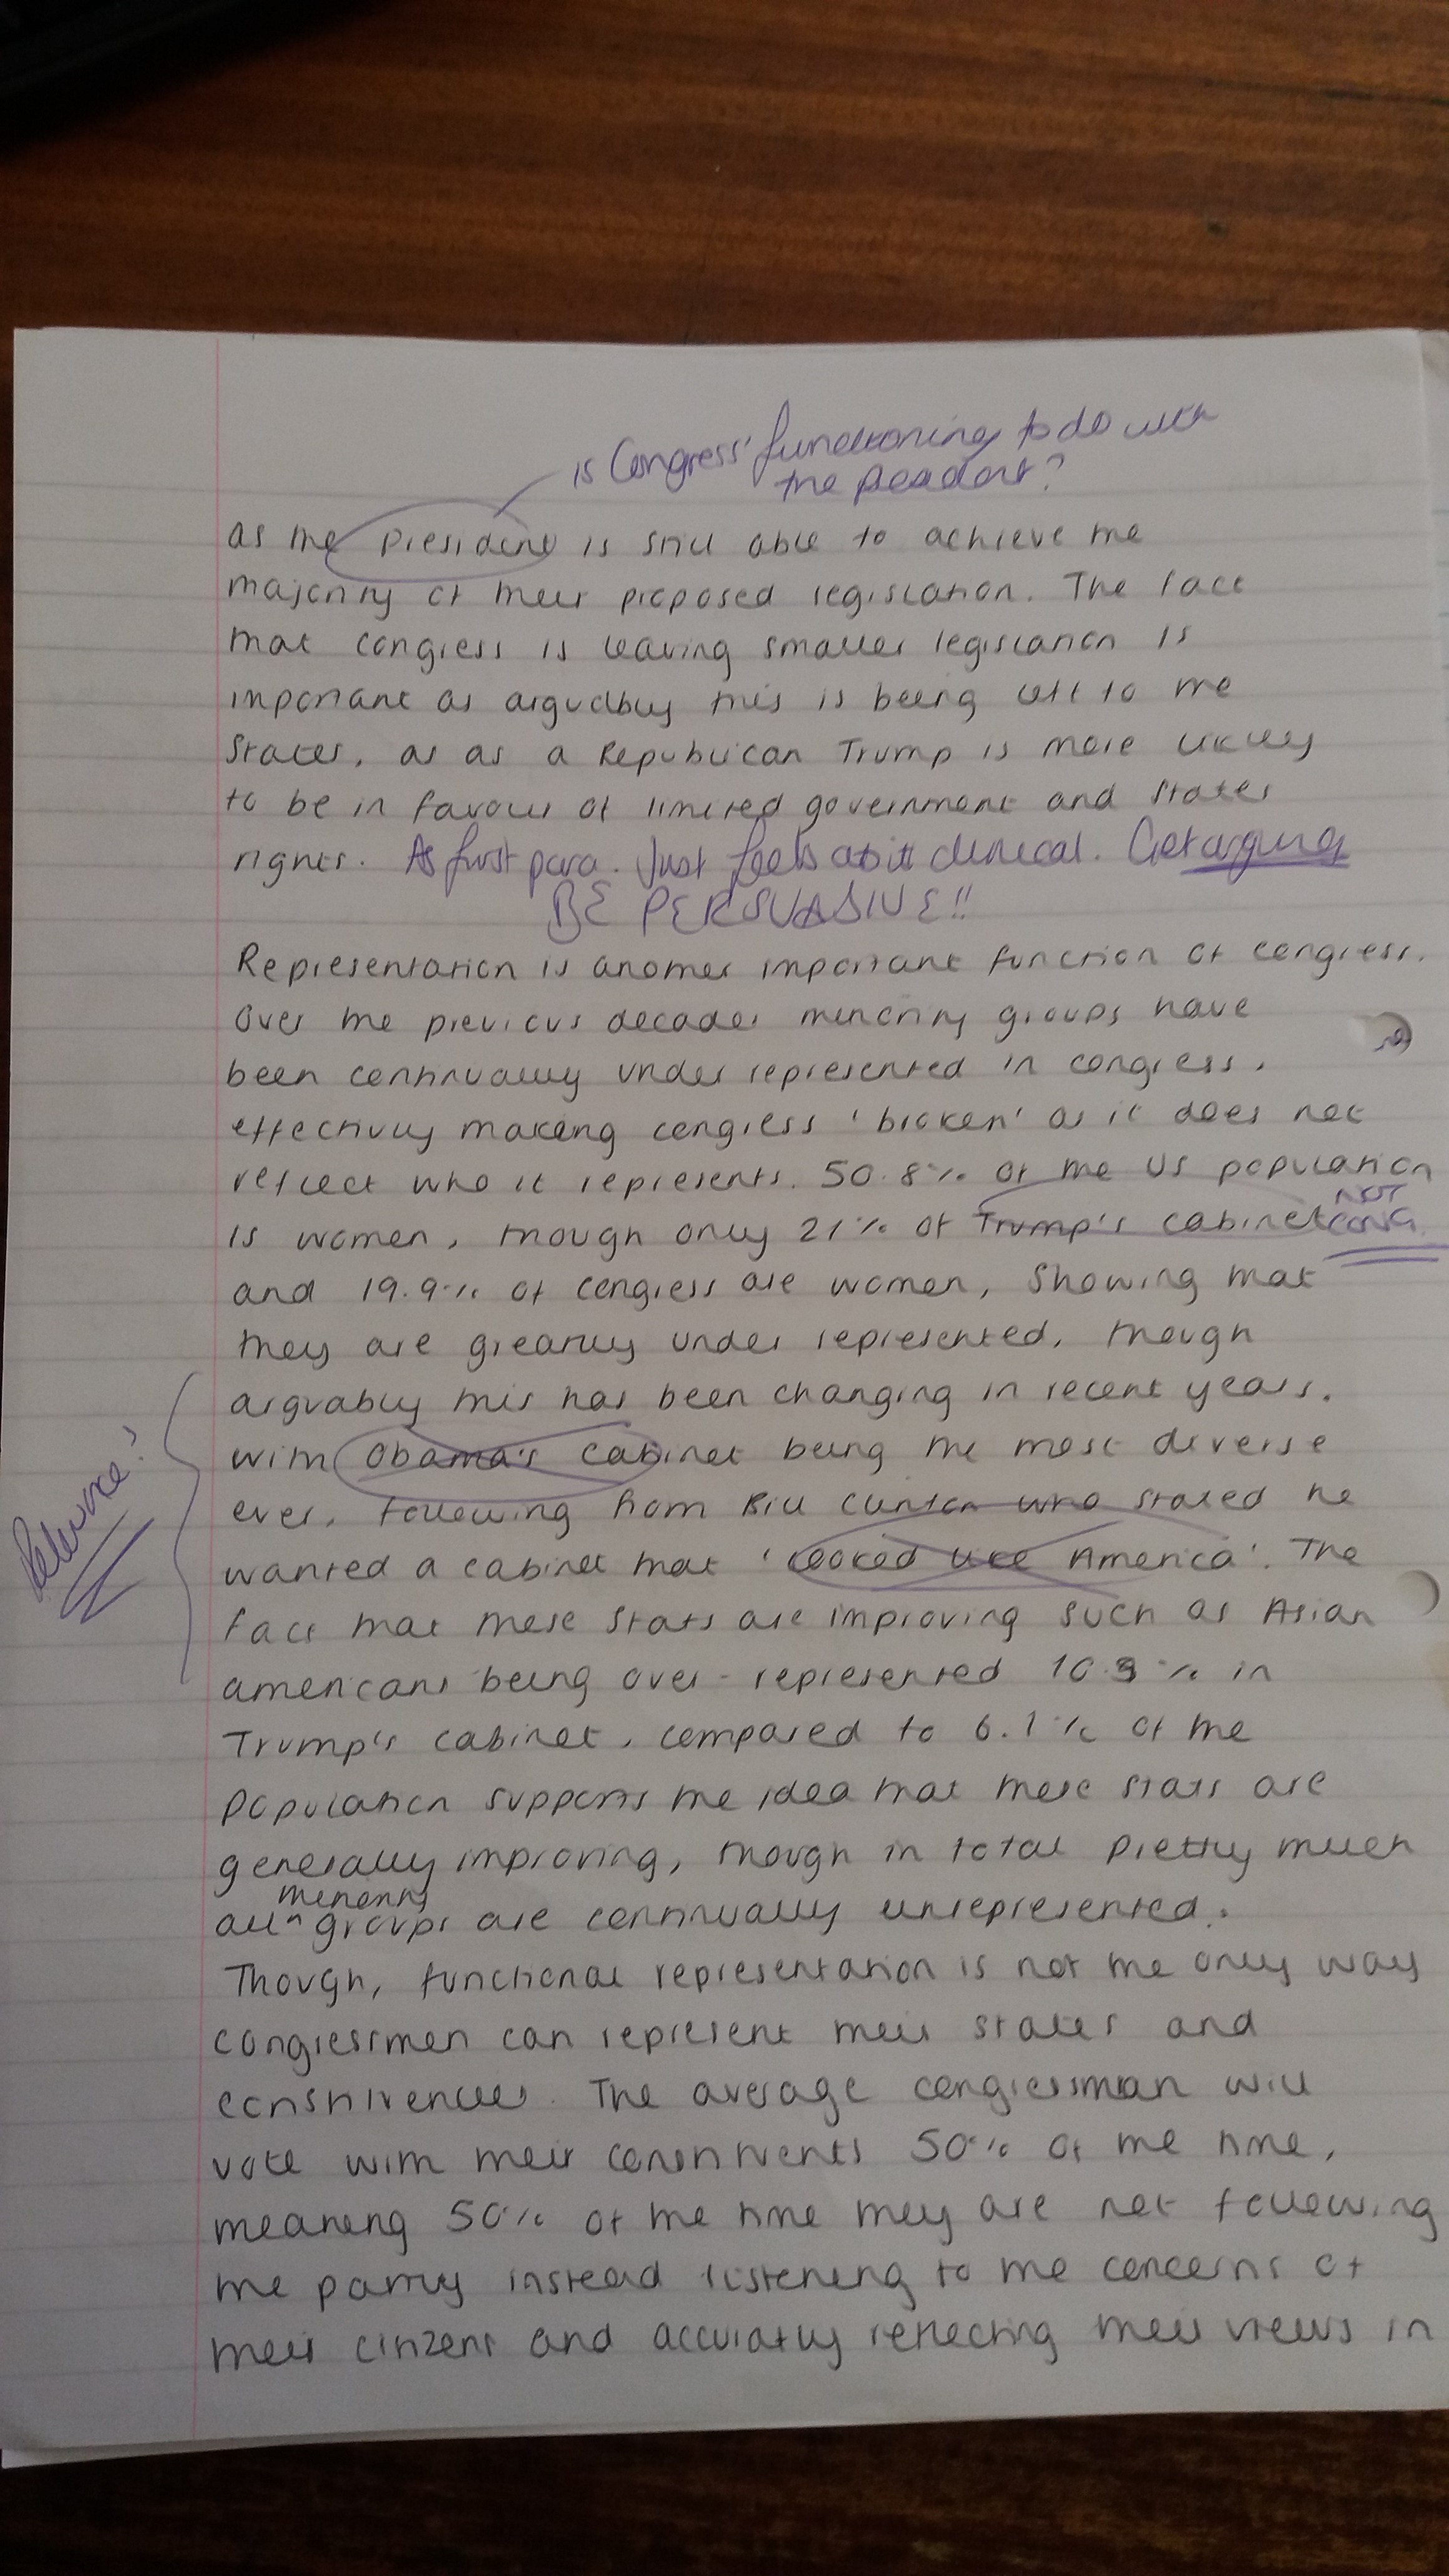 is Congress' functioning to do with
the President?
as the President is still able to achieve the
majority of their proposed legislation. The fact
that congress is leaving smaller legislation is
important as arguably this is being left to the
states, as as a Republican Trump is more likely
to be in favour of limited government and states
rights. As first para. Just feels a bit clinical. Get arguing
BE PERSUASIVE!!
Representation is another important function of congress.
Over the previous decades minority groups have
been continually under represented in congress,
effectivly making congress 'broken' as it does not
reflect who it represents. 50.8% of the US population
NOT
is women, though only 21% of Trump's cabinet CONG.
and 19.9% of congress are women, showing that
they are greatly under represented, though
arguably this has been changing in recent years.
with Obama's cabinet being the most diverse
Relevance?
ever, following from Bill Clinton who stated he
wanted a cabinet that 'looked like America'. The
fact that these stats are improving such as Asian
americans being over-represented 10.3% in
Trump's cabinet, compared to 6.1% of the
population supports the idea that these stats are
generally improving, though in total pretty much
minority
all ^ groups are continually unrepresented.
Though, functional representation is not the only way
congressmen can represent their states and
constituencies. The average congressman will
vote with their constituents 50% of the time,
meaning 50% of the time they are not following
the party instead listening to the concerns of
their citizens and accuratly reflecting their views in